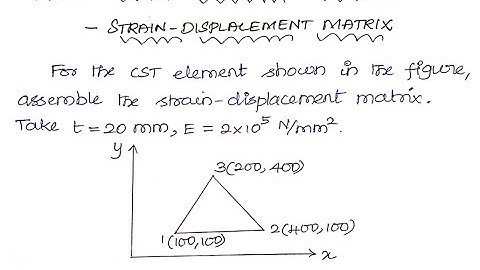 - STRAIN-DISPLACEMENT MATRIX
For the CST element shown in the figure,
assemble the strain-displacement matrix.
Take t = 20 mm, E = 2x10⁵ N/mm².
y
3(200,400)
1(100,100)
2(400,100)
x